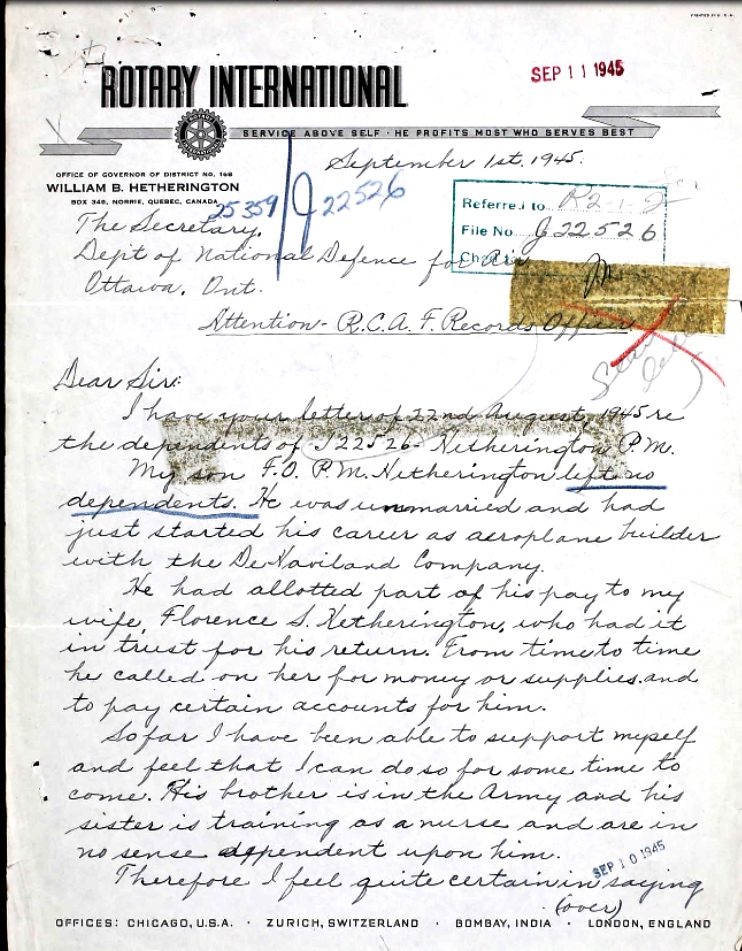 ROTARY INTERNATIONAL
SEP 11 1945
SERVICE ABOVE SELF · HE PROFITS MOST WHO SERVES BEST
September 1st. 1945.
OFFICE OF GOVERNOR OF DISTRICT No. 168
WILLIAM B. HETHERINGTON
BOX 348, NORRIE, QUEBEC, CANADA
25359 / J22526
Referred to
File No J22526
The Secretary.
Dept of National Defence for Air
Ottawa, Ont.
Attention - R.C.A.F. Records Officer
Dear Sir:
I have your letter of 22nd August, 1945 re
the dependents of J22526 - Hetherington P.M.
My son F.O. P.M. Hetherington left no
dependents. He was unmarried and had
just started his career as aeroplane builder
with the De Haviland Company.
He had allotted part of his pay to my
wife, Florence S. Hetherington, who had it
in trust for his return. From time to time
he called on her for money or supplies and
to pay certain accounts for him.
So far I have been able to support myself
and feel that I can do so for some time to
come. His brother is in the Army and his
sister is training as a nurse and are in
no sense dependent upon him.
SEP 10 1945
Therefore I feel quite certain in saying
(over)
OFFICES: CHICAGO, U.S.A. · ZURICH, SWITZERLAND · BOMBAY, INDIA · LONDON, ENGLAND